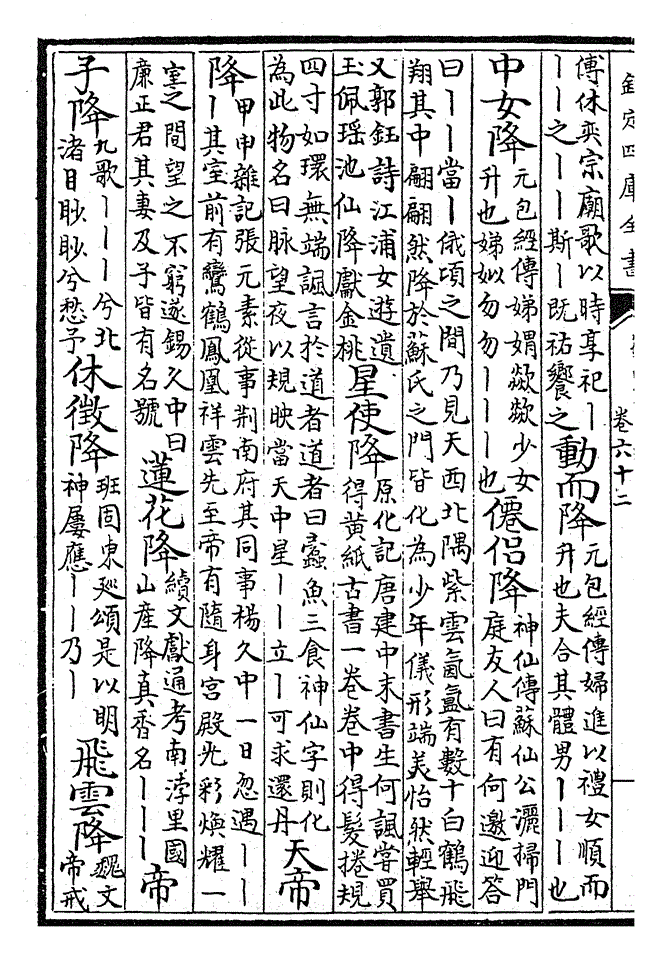 欽定四庫全書
卷六十二
傅休奕宗廟歌以時享祀丨
丨之丨丨斯丨既祐饗之
動而降
元包經傳婦進以禮女順而
升也夫合其體男丨丨丨也
中女降
元包經傳娣媦歘歘少女
升也娣姒勿勿丨丨丨也
僊侣降
神仙傳蘇仙公灑掃門
庭友人曰有何邀迎答
曰丨丨當丨俄頃之間乃見天西北隅紫雲氤氲有數十白鶴飛
翔其中翩翩然降於蘇氏之門皆化為少年儀形端美怡然輕舉
又郭鈺詩江浦女遊遺
玉佩瑶池仙降獻金桃
星使降
原化記唐建中末書生何諷嘗買
得黄紙古書一卷卷中得髮捲規
四寸如環無端諷言於道者道者曰蠧魚三食神仙字則化
為此物名曰脉望夜以規映當天中星丨丨立丨可求還丹
天帝
降
甲申雜記張元素從事荆南府其同事楊久中一日忽遇丨丨
丨其室前有鸞鶴鳳凰祥雲先至帝有隨身宫殿光彩煥耀一
室之間望之不窮遂錫久中曰
亷正君其妻及子皆有名號
蓮花降
續文獻通考南浡里國
山産降真香名丨丨丨
帝
子降
九歌丨丨丨兮北
渚目眇眇兮愁予
休徵降
班固東廵頌是以明
神屢應丨丨乃丨
飛雲降
魏文
帝戒